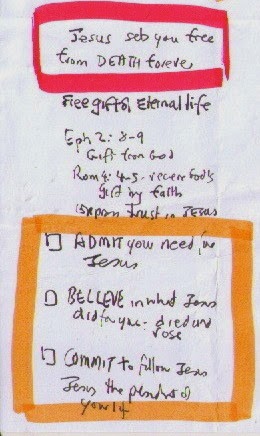 Jesus set you free
from DEATH forever
Free gift of Eternal life
Eph 2:8-9
Gift from God
Rom 4:4-5 - receive God's
gift by faith
Express trust in JESUS
ADMIT you need for
Jesus
BELIEVE in what Jesus
did for you - died and
rose
COMMIT to follow Jesus
Jesus the of
your life